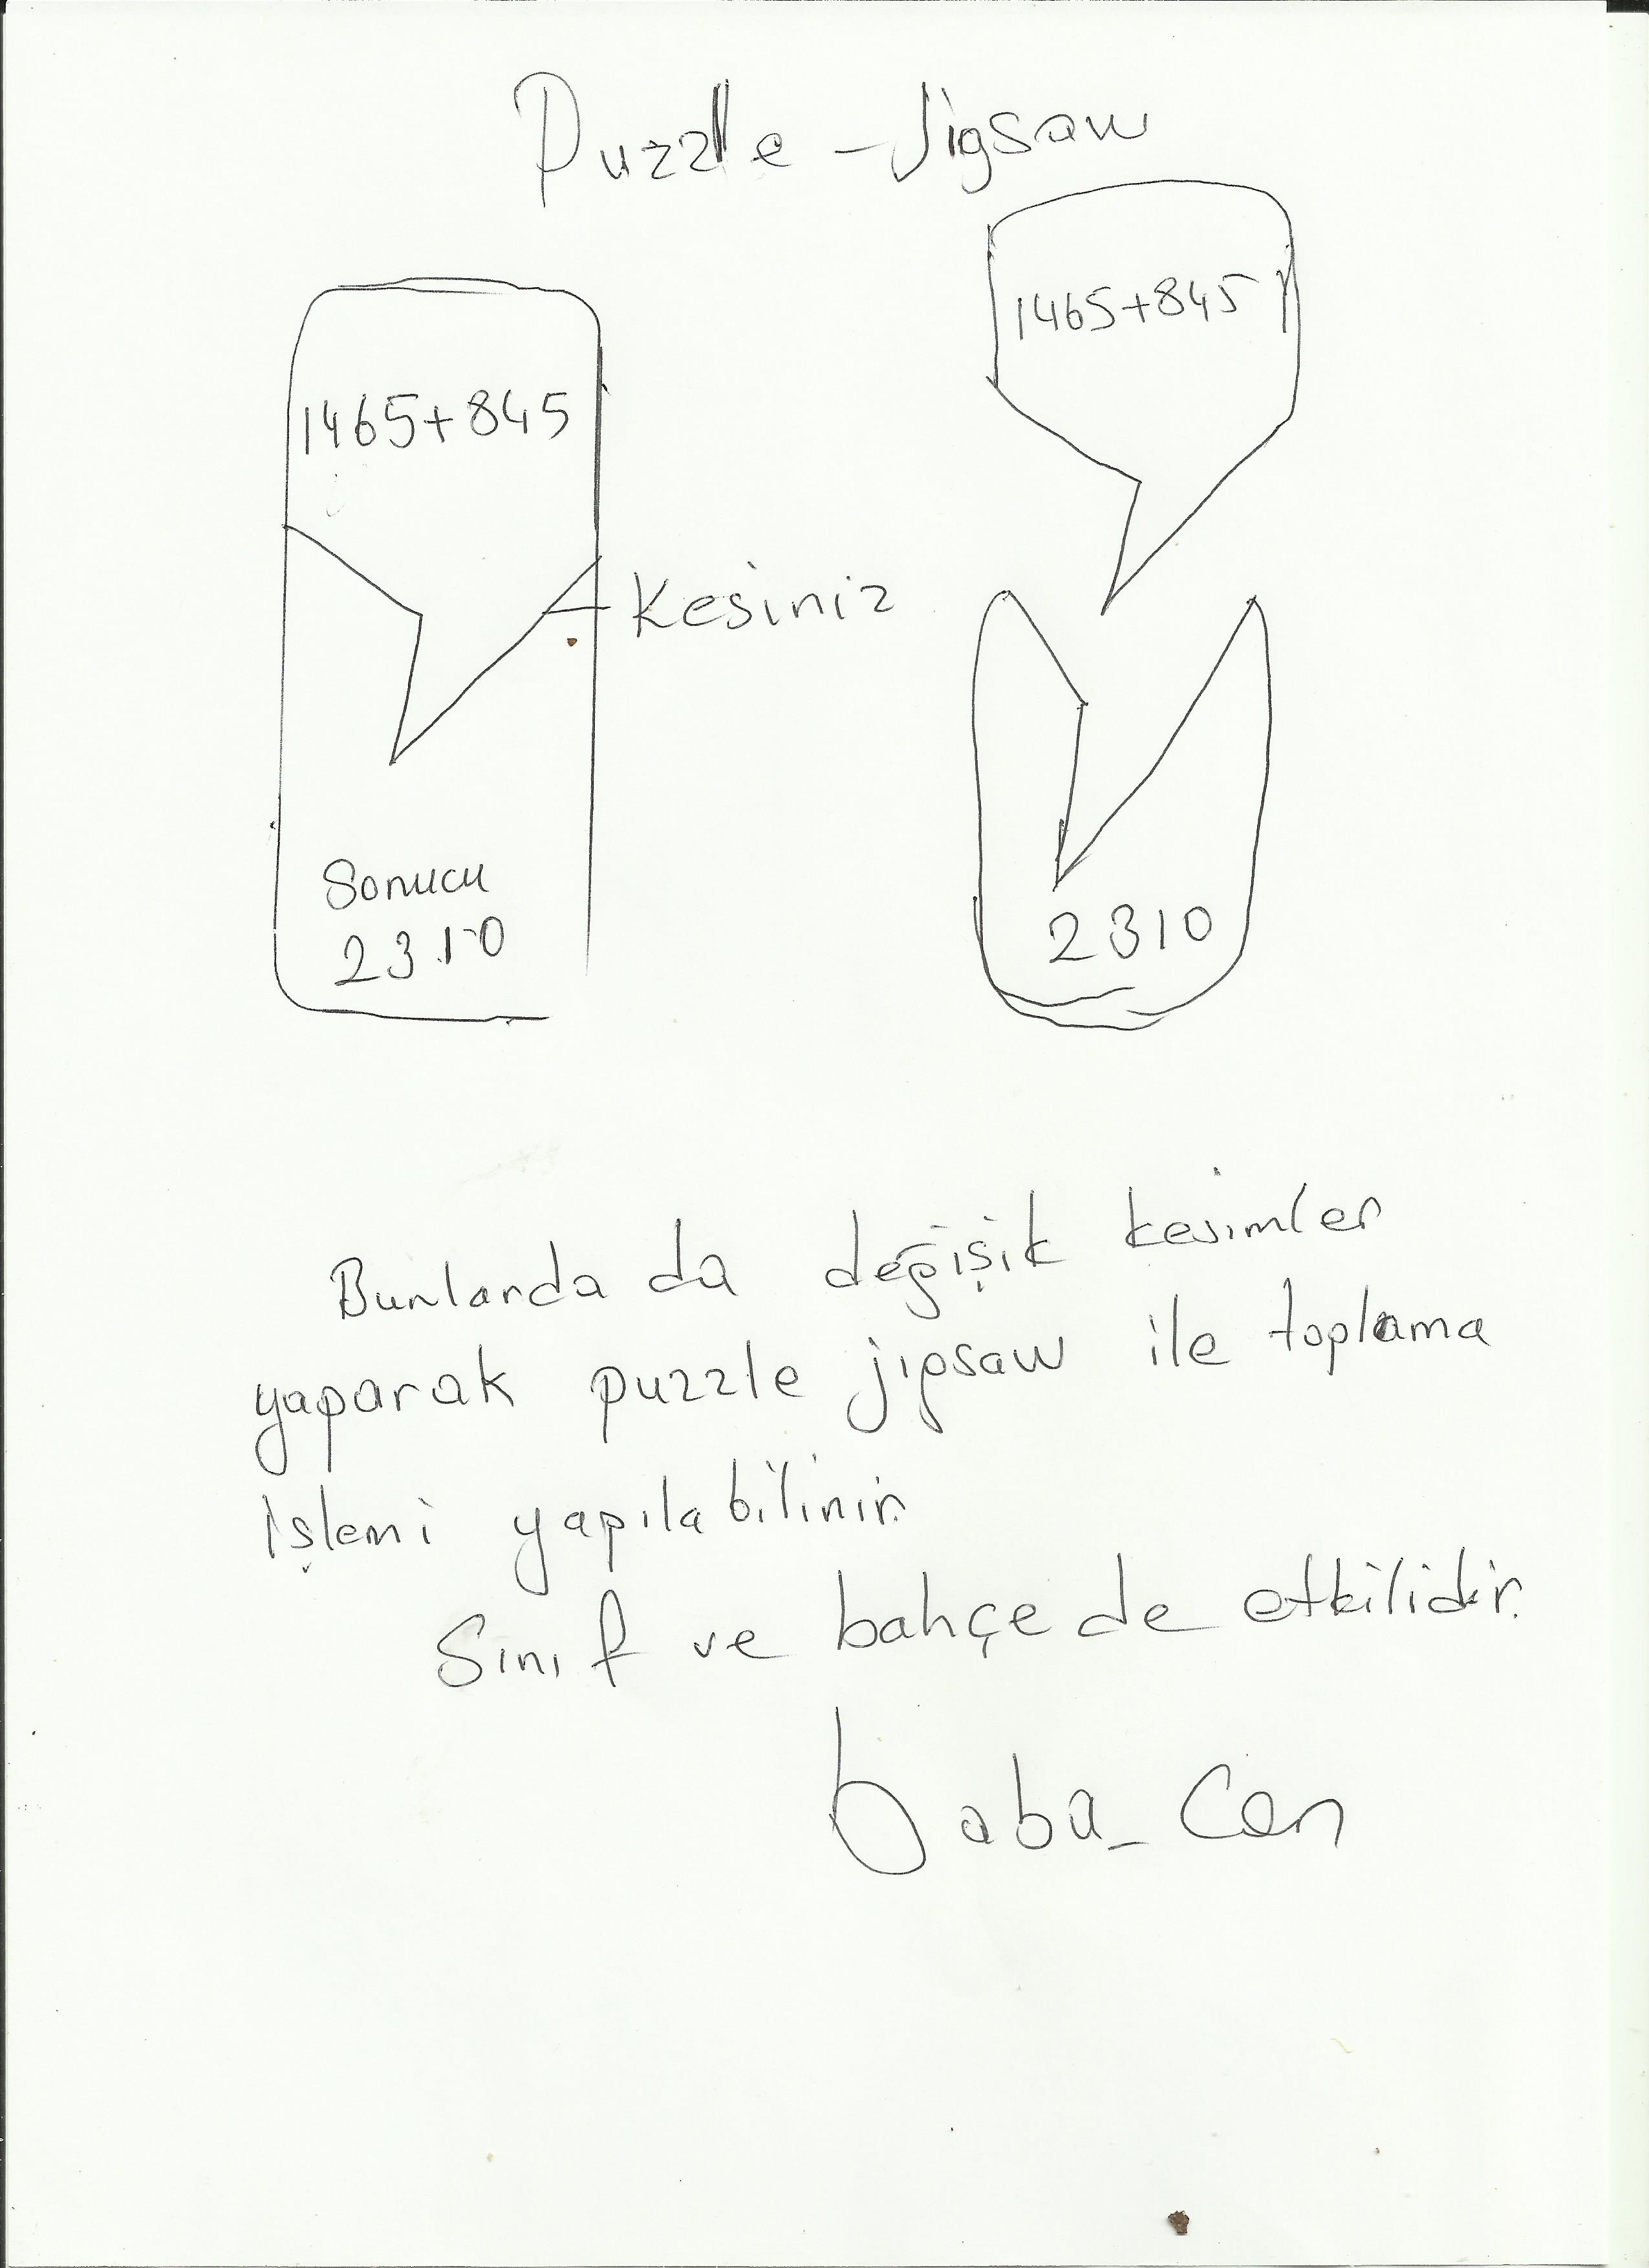 Puzzle - Jigsaw
1465+845
1465+845
Kesiniz
Sonucu
2310
2310
Bunlarda da değişik kesimler
yaparak puzzle jigsaw ile toplama
işlemi yapılabilinir.
Sınıf ve bahçede etkilidir.
baba_Can